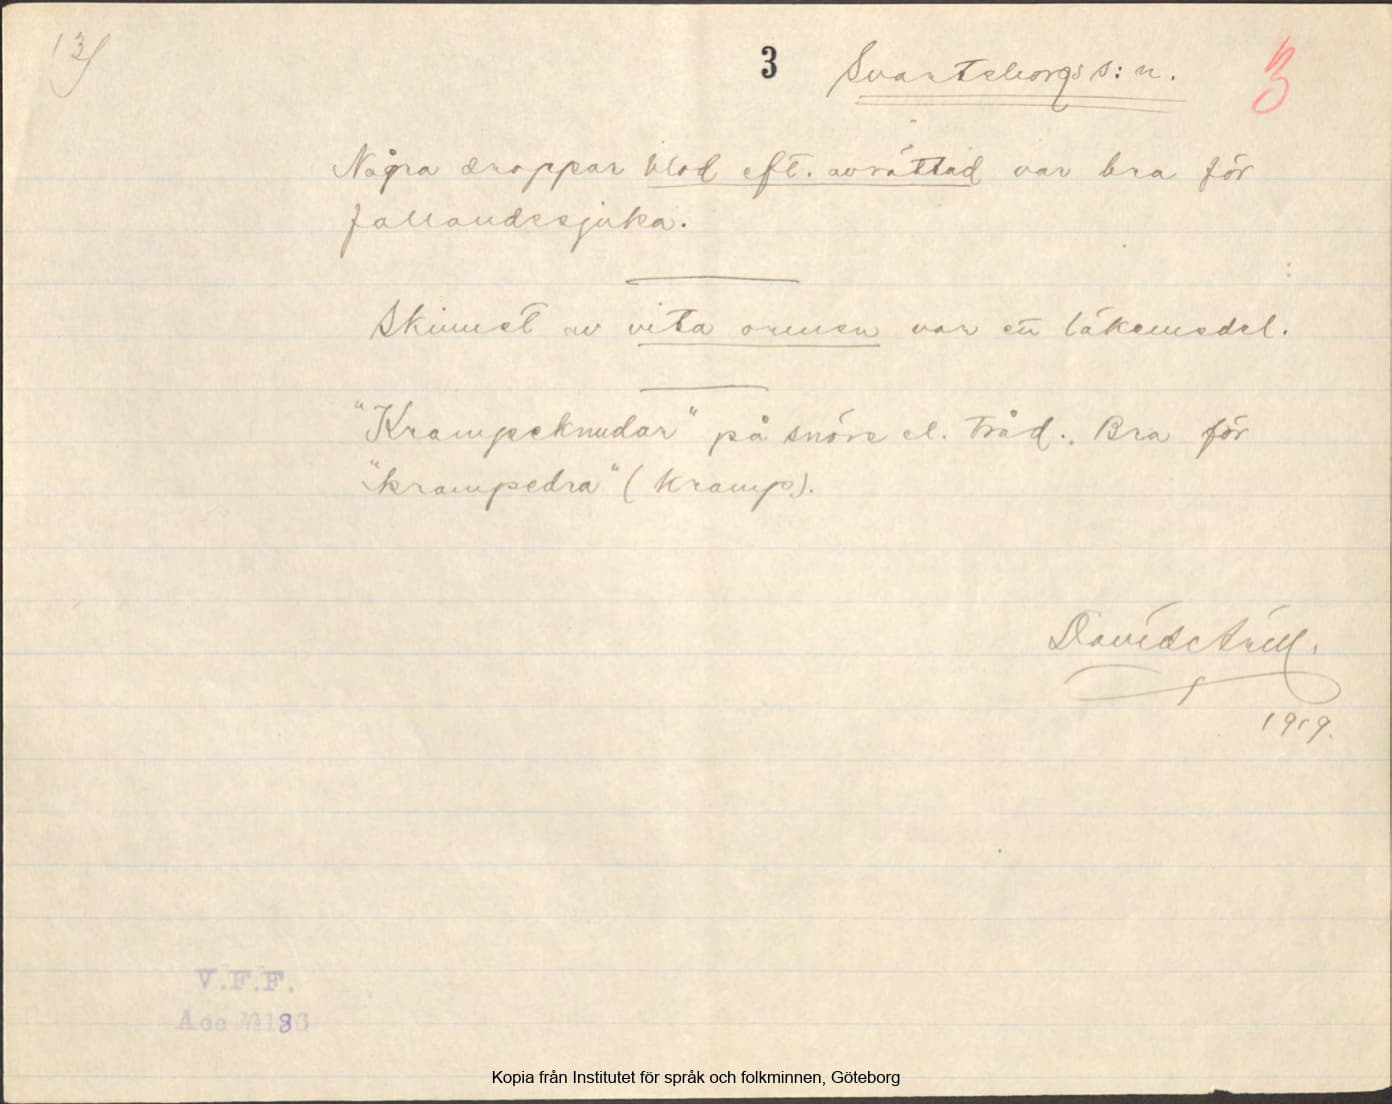 13)
3 Svarteborgs s:n. 3
Några droppar blod eft. avrättad var bra för
fallandesjuka.
Skinnet av vita ormen var en läkemedel.
"Krampeknudar" på snöre el. tråd. Bra för
"krampedra" (kramp).
David Arill.
1919.
V.F.F.
Acc
Kopia från Institutet för språk och folkminnen, Göteborg